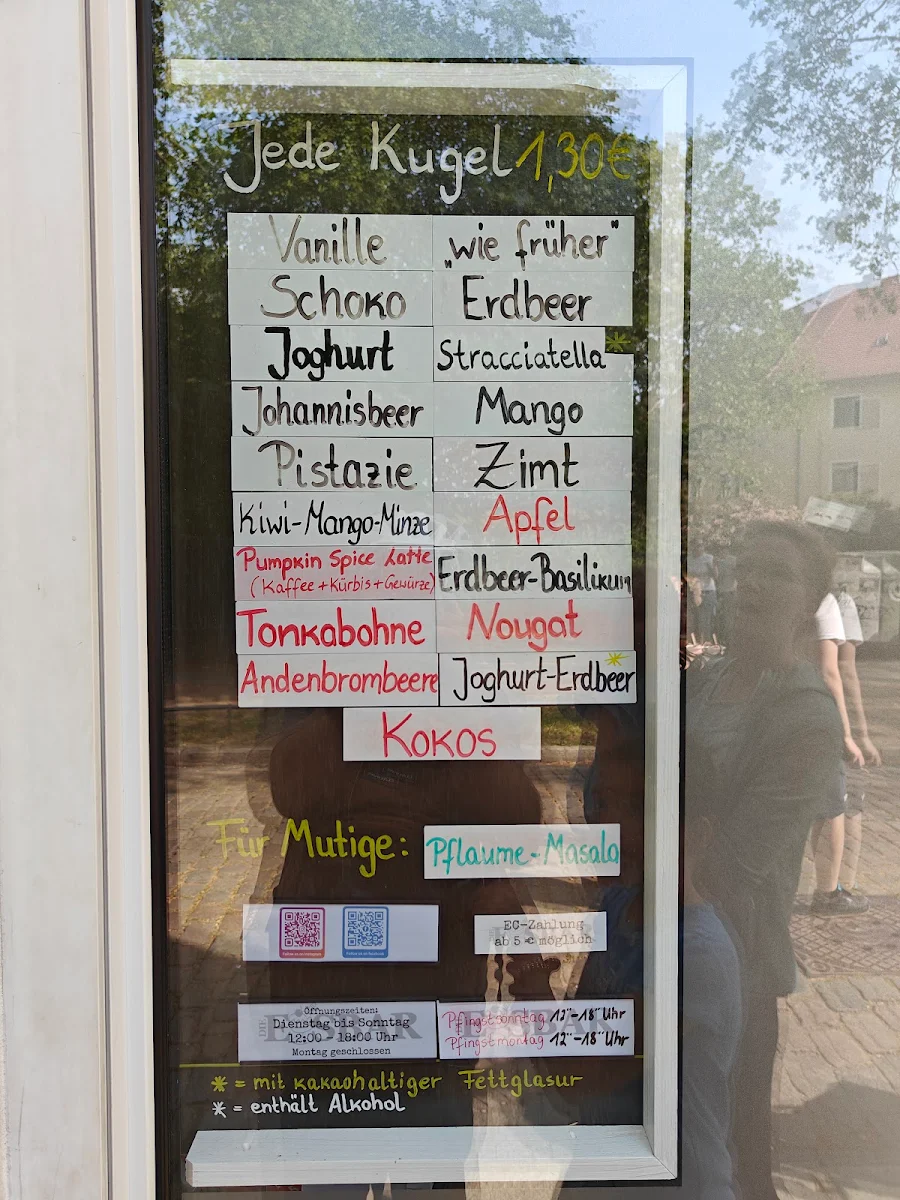 Jede Kugel 1,30€
Vanille
„wie früher"
Schoko
Erdbeer
Joghurt
Stracciatella *
Johannisbeer
Mango
Pistazie
Zimt
Kiwi-Mango-Minze
Apfel
Pumpkin Spice Latte
(Kaffee+Kürbis+Gewürze)
Erdbeer-Basilikum
Tonkabohne
Nougat
Andenbrombeere
Joghurt-Erdbeer *
Kokos
Für Mutige:
Pflaume-Masala
EC-Zahlung
ab 5 € möglich
Öffnungszeiten:
Dienstag bis Sonntag
12:00 - 18:00 Uhr
Montag geschlossen
Pfingstsonntag 12°°-18°° Uhr
Pfingstmontag 12°°-18°° Uhr
* = mit kakaohaltiger Fettglasur
* = enthält Alkohol